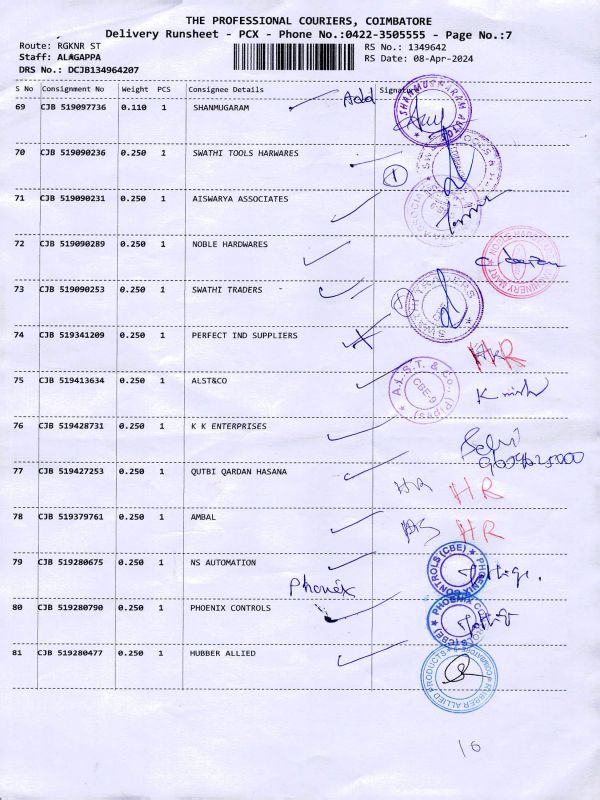 THE PROFESSIONAL COURIERS, COIMBATORE
Delivery Runsheet - PCX - Phone No.:0422-3505555 - Page No.:7
Route: RGKNR ST RS No.: 1349642
Staff: ALAGAPPA RS Date: 08-Apr-2024
DRS No.: DCJB134964207
S No Consignment No Weight PCS Consignee Details Signature
69 CJB 519097736 0.110 1 SHANMUGARAM Add
70 CJB 519090236 0.250 1 SWATHI TOOLS HARWARES
71 CJB 519090231 0.250 1 AISWARYA ASSOCIATES
72 CJB 519090289 0.250 1 NOBLE HARDWARES
73 CJB 519090253 0.250 1 SWATHI TRADERS -
74 CJB 519341209 0.250 1 PERFECT IND SUPPLIERS HR
75 CJB 519413634 0.250 1 ALST&CO A.L.S.T. & Co. CBE-9
76 CJB 519428731 0.250 1 K K ENTERPRISES
77 CJB 519427253 0.250 1 QUTBI QARDAN HASANA HR HR
78 CJB 519379761 0.250 1 AMBAL HR
79 CJB 519280675 0.250 1 NS AUTOMATION Phonex
80 CJB 519280790 0.250 1 PHOENIX CONTROLS
81 CJB 519280477 0.250 1 HUBBER ALLIED
16